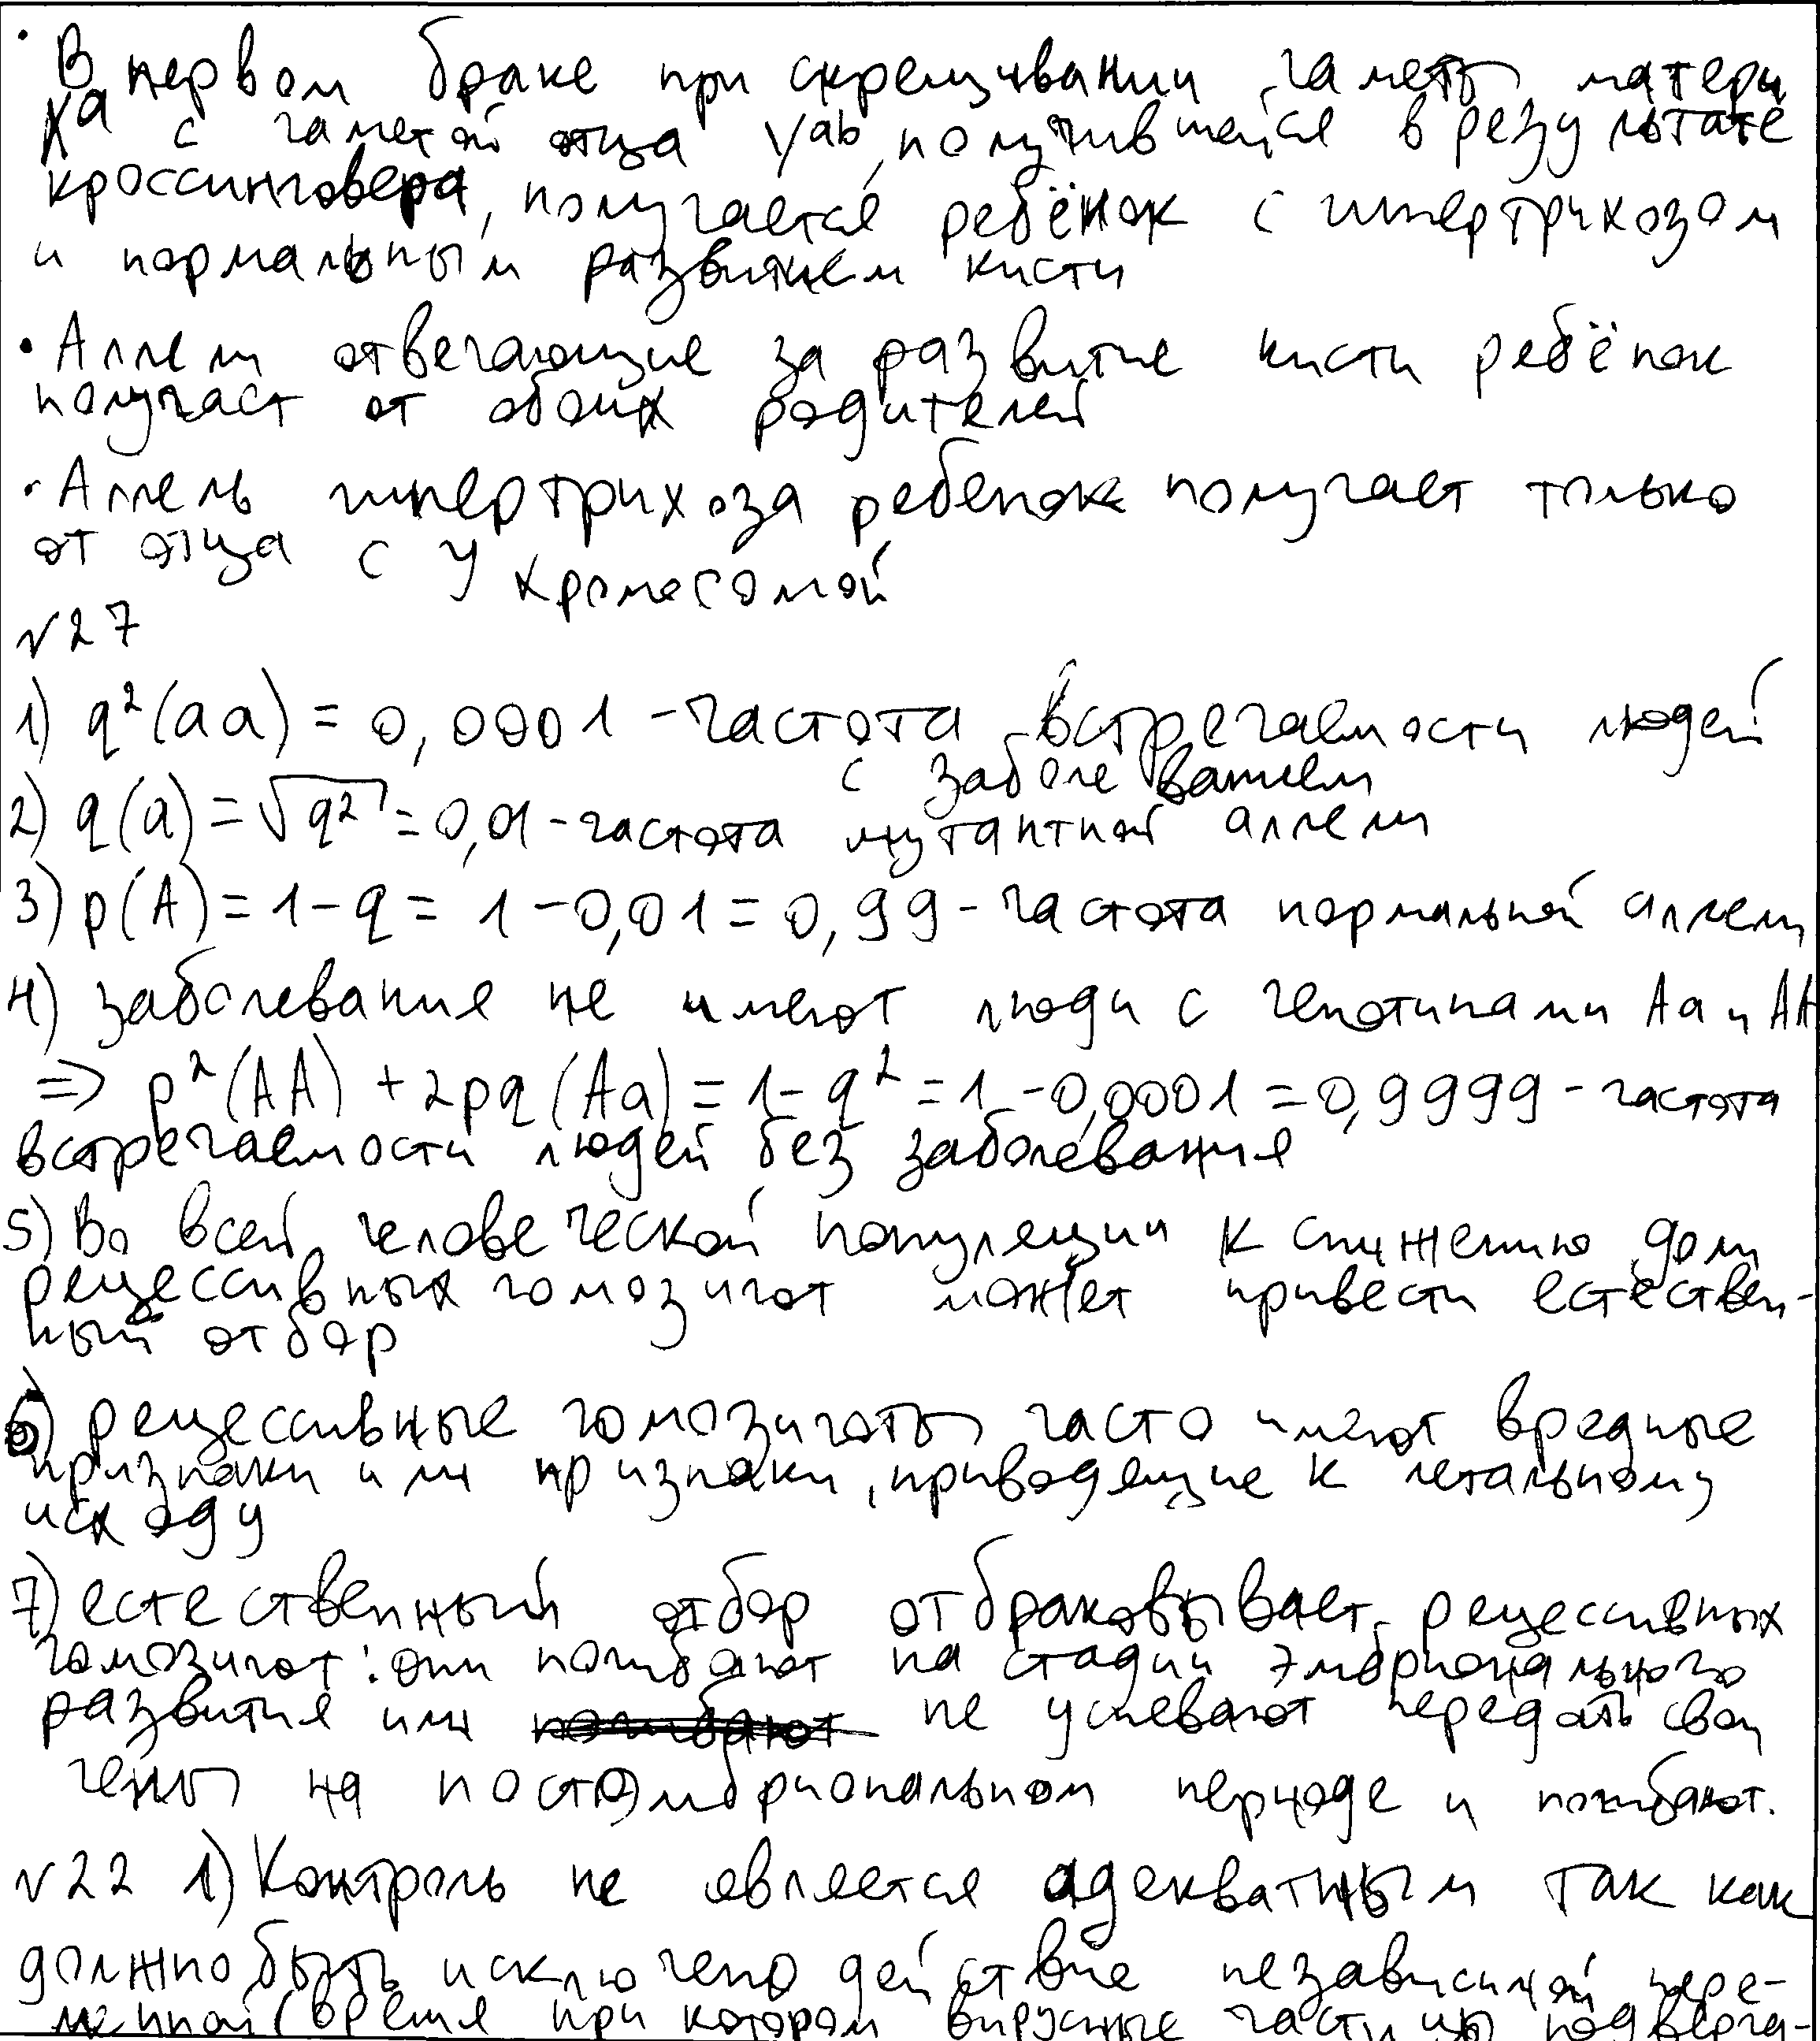 · В первом браке при скрещивании гаметы матери
Xᵃ с гаметой отца Yᵃᵇ, получившейся в результате
кроссинговера, получается ребёнок с гипертрихозом
и нормальным развитием кисти
· Аллели отвечающие за развитие кисти ребёнок
получает от обоих родителей
· Аллель гипертрихоза ребенок получает только
от отца с У хромосомой
√27
1) q²(aa) = 0,0001 - частота встречаемости людей
с заболеванием
2) q(a) = √q² = 0,01 - частота мутантной аллели
3) p(A) = 1 - q = 1 - 0,01 = 0,99 - частота нормальной аллели
4) заболевание не имеют люди с генотипами Аа и АА
=> p²(AA) + 2pq(Aa) = 1 - q² = 1 - 0,0001 = 0,9999 - частота
встречаемости людей без заболевания
5) Во всей человеческой популяции к снижению доли
рецессивных гомозигот может привести естествен-
ный отбор
6) рецессивные гомозиготы часто имеют вредные
признаки или признаки, приводящие к летальному
исходу
7) естественный отбор отбраковывает рецессивных
гомозигот: они погибают на стадии эмбрионального
развития или погибают не успевают передать свои
гены на постэмбриональном периоде и погибают.
√22 1) Контроль не является адекватным так как
должно быть исключено действие независимой пере-
менной (время при котором вирусные частицы подверга-